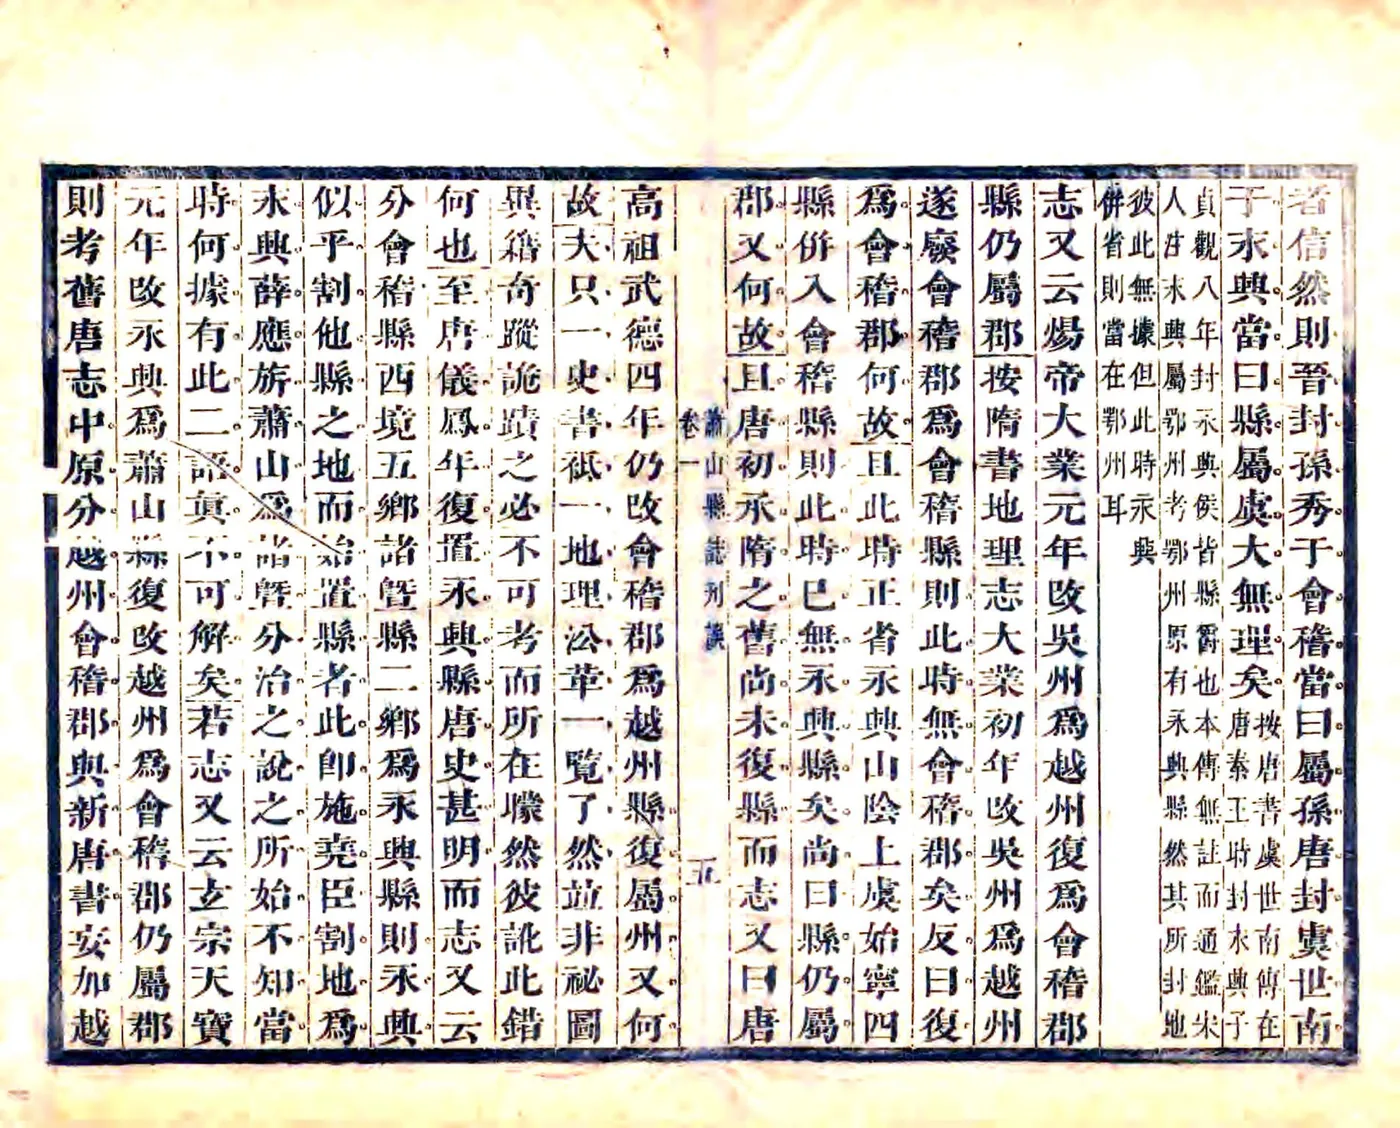 者信然則晉封孫秀于會稽當曰屬孫唐封虞世南
子永興當曰縣屬虞大無理矣
按唐書虞世南傳在
唐秦王時封永興子
貞觀八年封永興侯皆縣爵也本傳無註而通鑑宋
人註永興屬鄂州考鄂州原有永興縣然其所封地
彼此無據但此時永興
併省則當在鄂州耳
志又云煬帝大業元年改吳州爲越州復爲會稽郡
縣仍屬郡按隋書地理志大業初年改吳州爲越州
遂廢會稽郡爲會稽縣則此時無會稽郡矣反曰復
爲會稽郡何故且此時正省永興山陰上虞始寧四
縣併入會稽縣則此時已無永興縣矣尚曰縣仍屬
郡又何故且唐初承隋之舊尚未復縣而志又曰唐
蕭山縣誌刋誤
卷一
五
高祖武德四年仍改會稽郡爲越州縣復屬州又何
故夫只一史書祗一地理沿革一覽了然並非祕圖
異籍奇蹤詭蹟之必不可考而所在矇然彼訛此錯
何也至唐儀鳳年復置永興縣唐史甚明而志又云
分會稽縣西境五鄉諸暨縣二鄉爲永興縣則永興
似乎割他縣之地而始置縣者此卽施堯臣割地爲
永興薛應旂蕭山爲諸暨分治之說之所始不知當
時何據有此二語眞不可解矣若志又云玄宗天寶
元年改永興爲蕭山縣復改越州爲會稽郡仍屬郡
則考舊唐志中原分越州會稽郡與新唐書妄加越